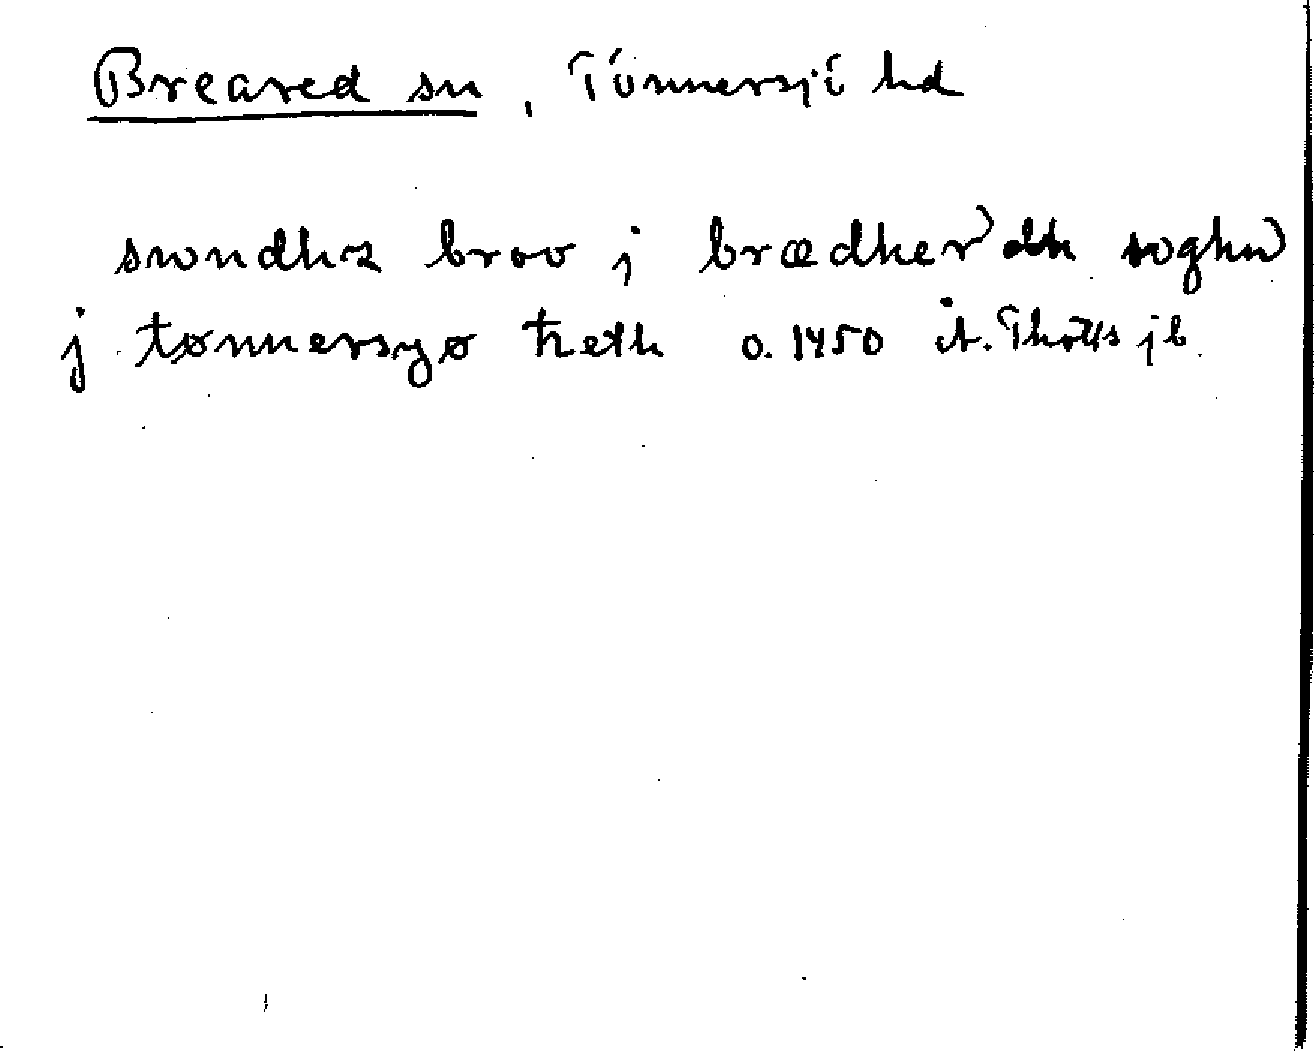 Breared sn, Tönnersjö hd
swndhz broo j brædherødh soghn
j tønnersyø heth o. 1450 Å. Thotts jb.